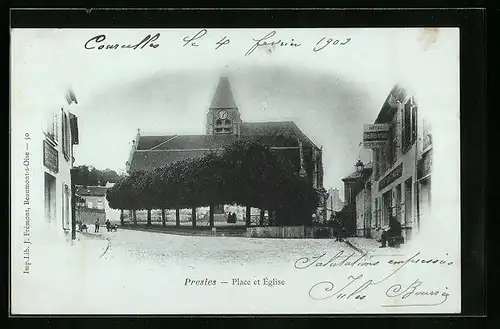 Courcelles le 4 février 1903
HOTEL
Imp.-Lib. J. Frémont, Beaumont-s-Oise — 50
Presles — Place et Église
Salutations empressées
Jules Bourry